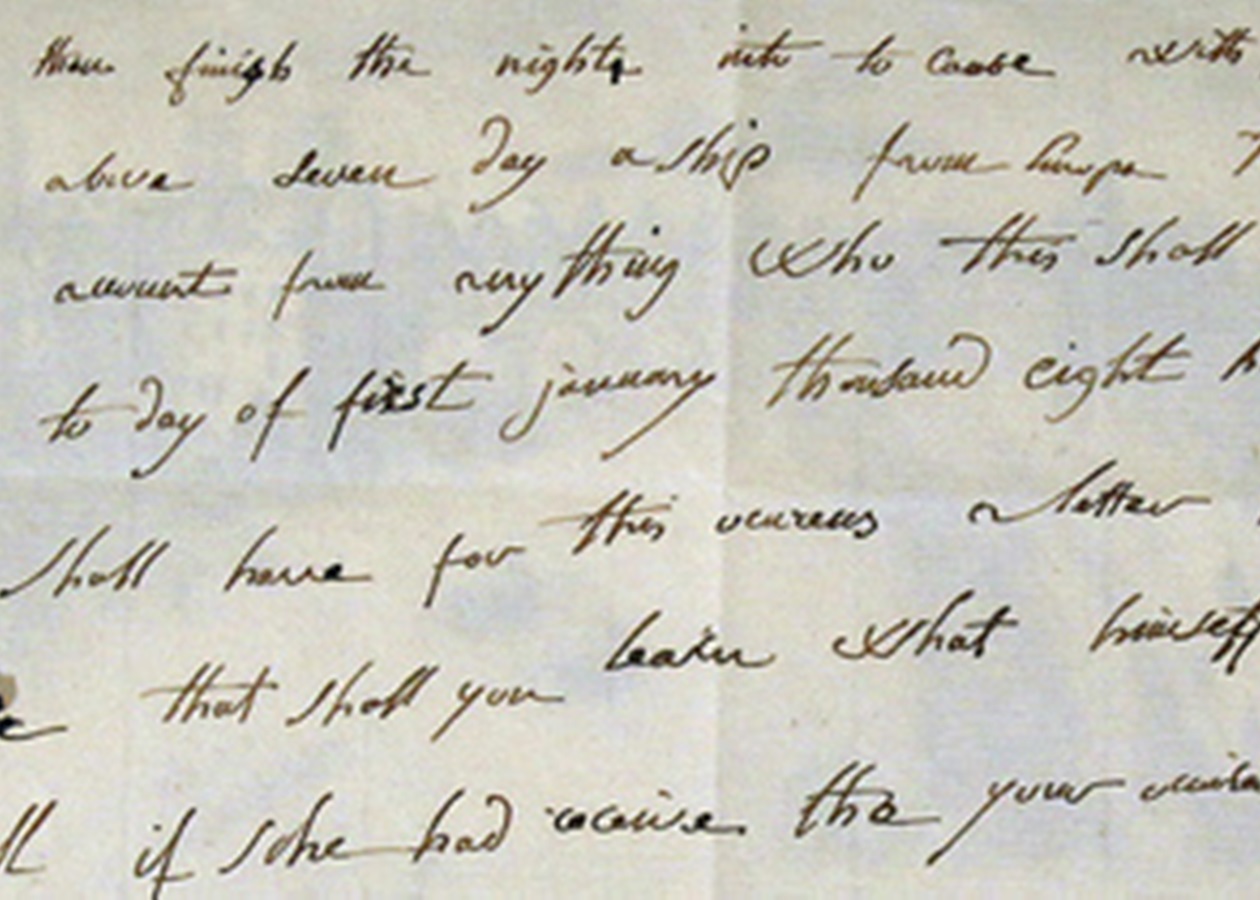 then finish the night, into to cause with
above seven day a ship from Europa
account from my thing who this shall
to day of first january thousand eight
shall have for this vereus a letter
that shall you learn what himself
if sche had receive the your